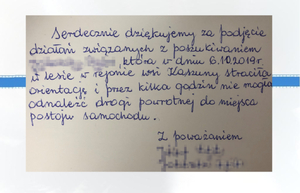 Serdecznie dziękujemy za podjęcie
działań związanych z poszukiwaniem
która w dniu 6.10.2019r.
w lesie w rejonie wsi Kaszuny straciła
orientację i przez kilka godzin nie mogła
odnaleźć drogi powrotnej do miejsca
postoju samochodu.
Z poważaniem